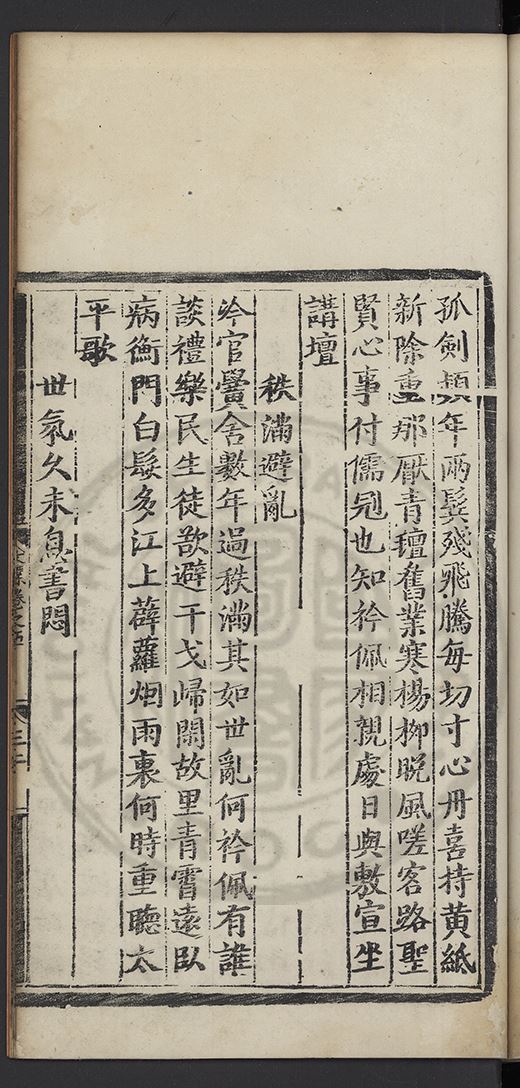 孤劍頻年兩鬢殘飛騰每切寸心丹喜持黄紙
新除重那厭青氊舊業寒楊柳晚風嗟客路聖
賢心事付儒冠也知衿佩相親處日與敷宣坐
講壇
秩滿避亂
冷官黌舍數年過秩滿其如世亂何衿佩有誰
談禮樂民生徒歆避干戈歸閑故里青霄遠臥
病衡門白髮多江上薜蘿烟雨裏何時重聽太
平歌
世氛久未息書悶
卷之五